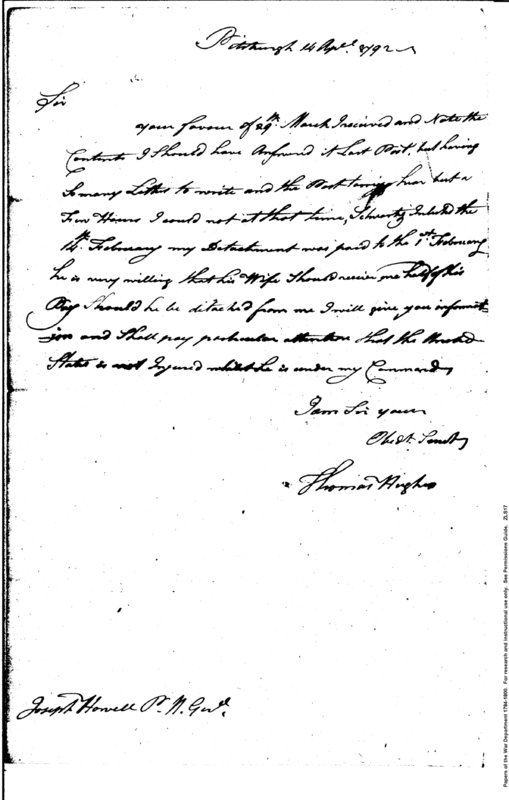 Pittsburgh 14 Apl. 1792
Sir
your favour of 29th. March I received and Note the
Contents I Should have Answered it Last Post, but having
So many Letters to write and the Post tarrying hear but a
Few Hours I could not at that time, Schwartz Inlisted the
14th. February my Detachment was paid to the 1st February
he is very willing that his Wife Should receive one half of his
Pay Should he be detached from me I will give you informat-
-ion and Shall pay particular attention that the United
States is not Injured whilst he is under my Command
I am Sir your
Obedt. Servt
Thomas Hughes
Joseph Howell P. M. Genl.
Papers of the War Department 1784-1800. For research and instructional use only. See Permissions Guide. ZLS17